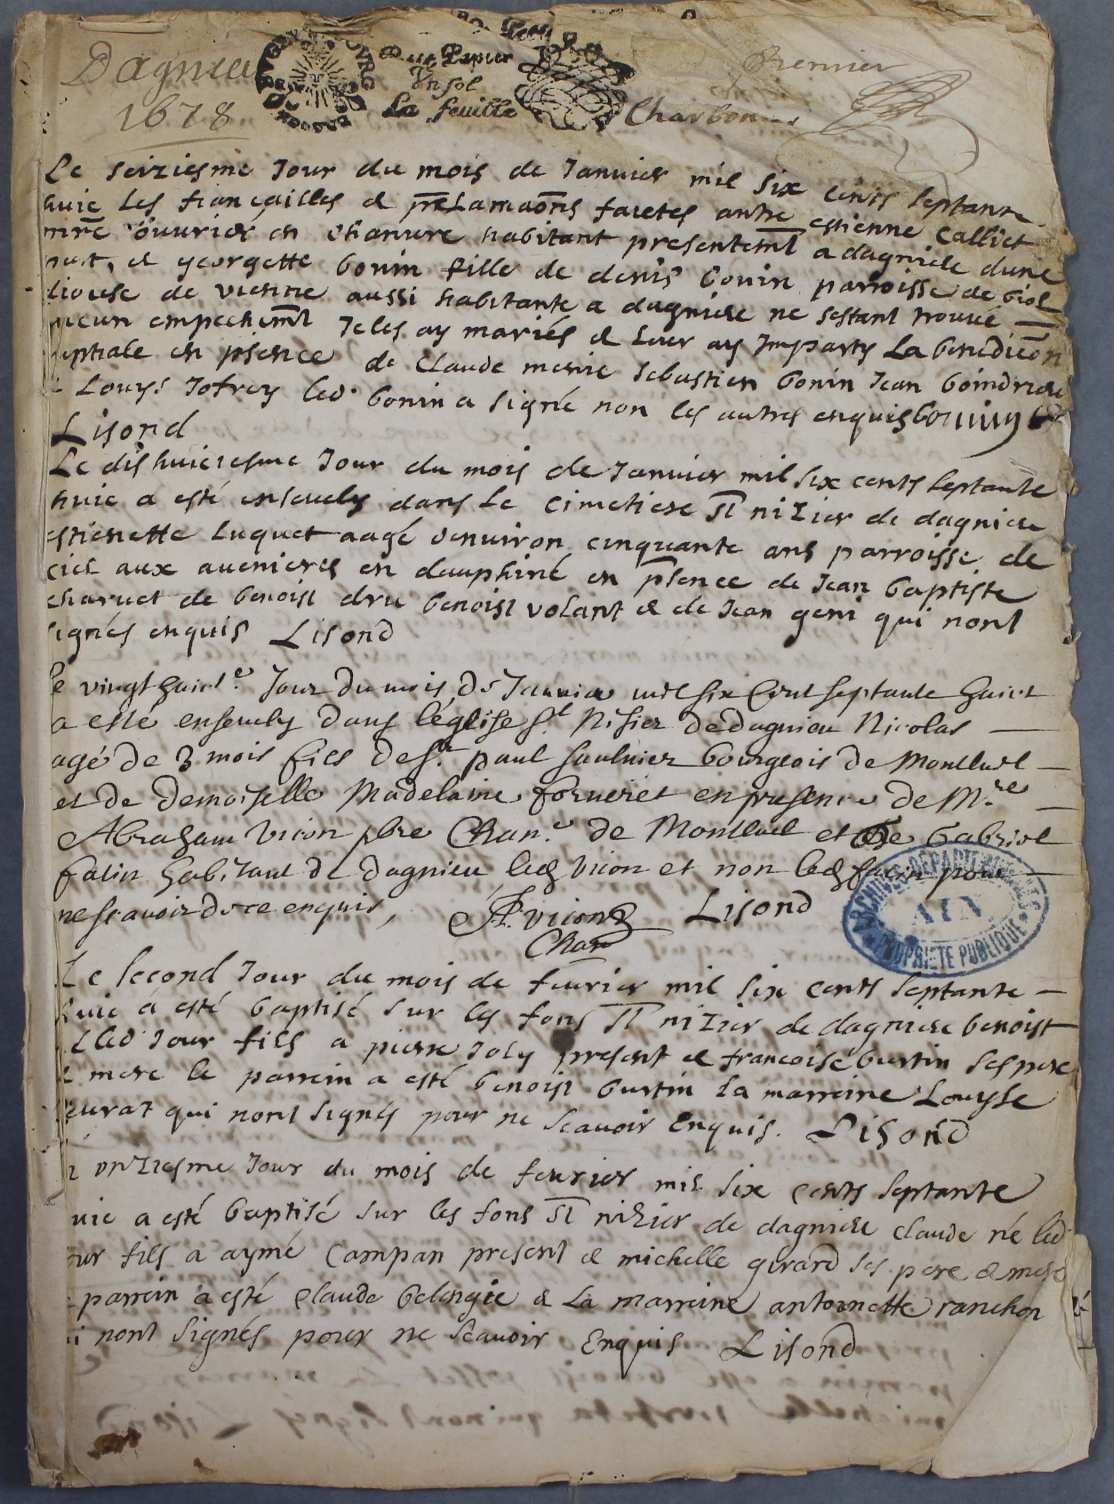 Dagnieu
1678
Petit Papier
Un sol
La feuille
Premier
Charbon
Le seiziesme Jour du mois de Janvier mil six cents septante
huic les fiançailles & proclamaōns faictes antre estienne calliet
mre ouvrier en chanvre habitant presentemt a dagniere dune
part, & georgette bonin fille de denis bonin parroisse de biol
diocese de vienne aussi habitante a dagniere ne sestant trouvé
aucun empechemt Je les ay mariés & leur ay Imparty La benediction
nuptiale en psence de Claude menic Sebastien bonin Jean boindrieu
& Louys Jofrey led. bonin a signé non les autres enquis bonnin
Lisond
Le dishuictesme Jour du mois de Janvier mil six cents septante
huic a esté ensevely dans Le cimetiere St nizier de dagniere
estienette Luquet aagé denviron cinquante ans parroisse de
ciel aux avenieres en dauphiné en psence de Jean baptiste
charvet de benoist dru benoist volant & de Jean geni qui nont
signés enquis Lisond
Le vingt huict.e Jour du mois de Janvier mil six Cent septante huict
a esté ensevely dans léglise St. Nisier de dagnieu Nicolas
agé de 3 mois fils de sr. paul saulnier bourgeois de Montluel
et de demoiselle Madelaine forneret en presence de Mre
Abraham Vicon pbre Chan.e de Montluel et de Gabriel
falin habitant de dagnieu led Vicon et non led falin pour
ne scavoir de ce enquis, A. Vicon Lisond
Chan
Le second Jour du mois de fevrier mil six cents septante
huic a esté baptisé sur les fons St nizier de dagniere benoist
né led Jour fils a pierre Joly present & francoise burtin ses pere
& mere le parrein a esté benoist burtin La marreine Louyse
curat qui nont signés pour ne scavoir Enquis. Lisond
Le onziesme Jour du mois de fevrier mil six cents septante
huic a esté baptisé sur les fons St nizier de dagniere claude né led
Jour fils a aymé Campan present & michelle girard ses pere & mere
Le parrein a esté claude belingie & La marreine antoinette ranchon
qui nont signés pour ne scavoir Enquis Lisond
ARCHIVES DÉPARTEMENTALES
AIN
PROPRIÉTÉ PUBLIQUE